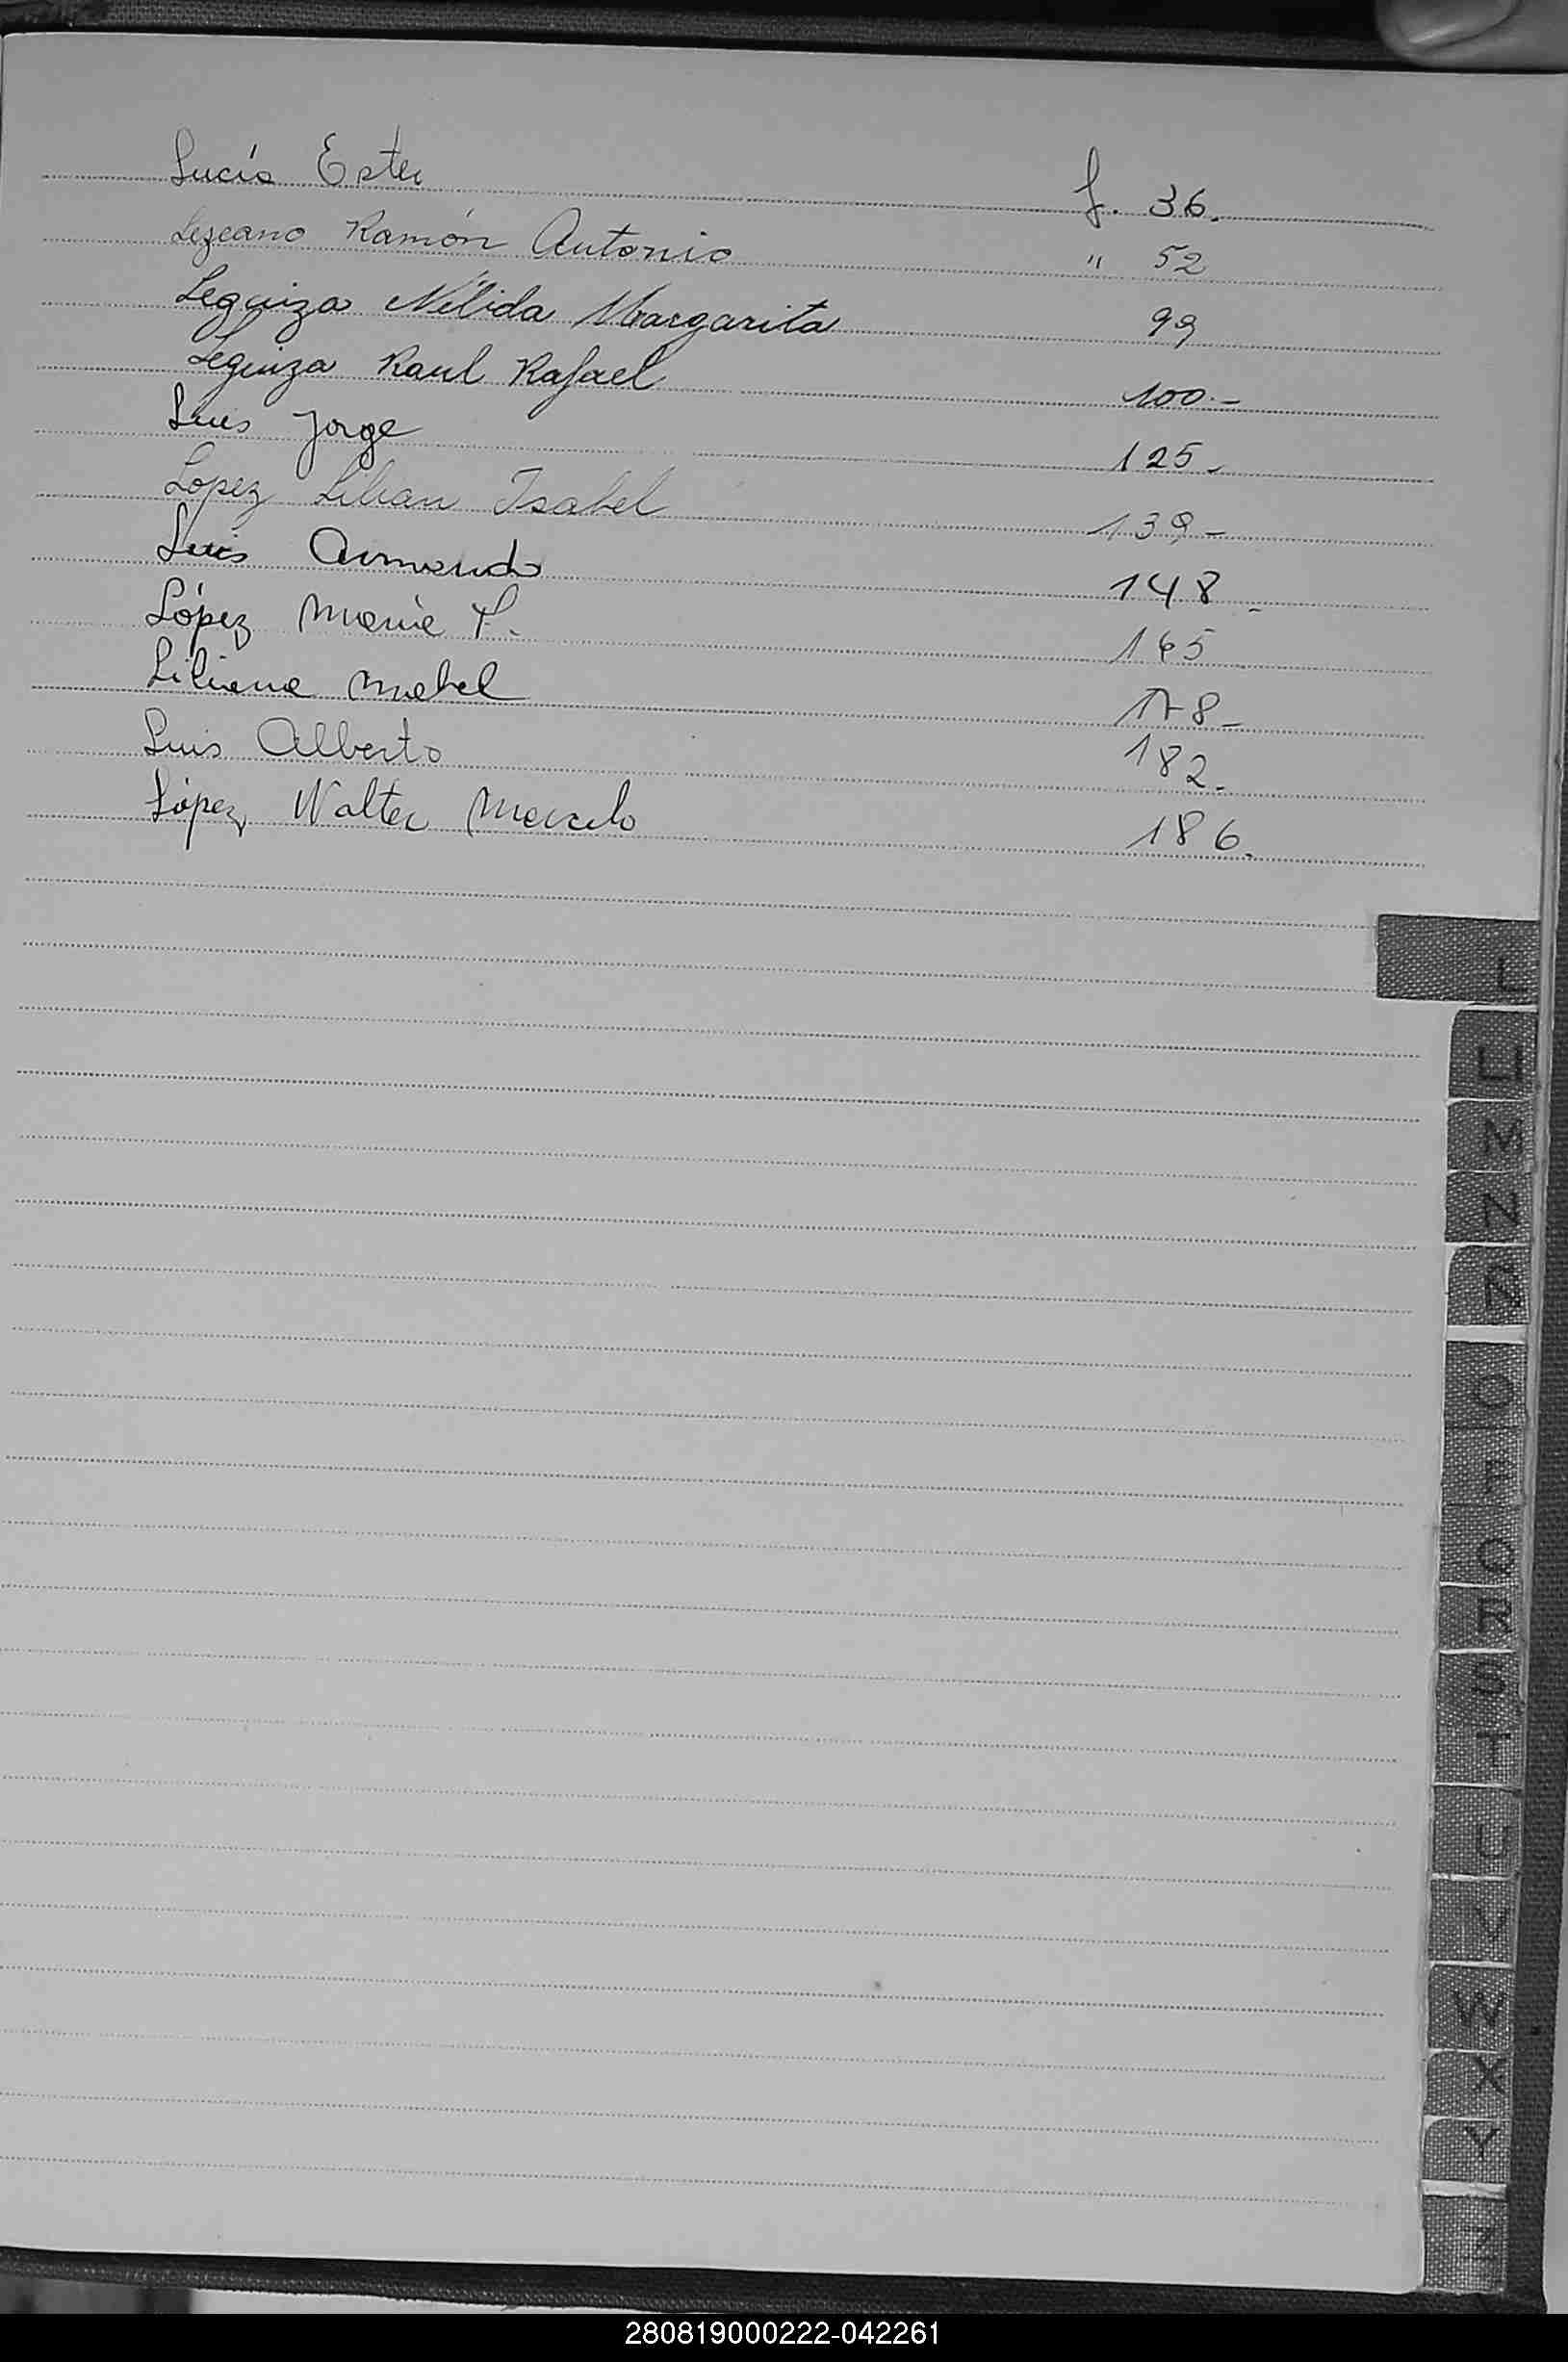 Lucía Ester f. 36.
Lezcano Ramón Antonio " 52
Leguiza Nélida Margarita 99
Leguiza Raul Rafael 100.-
Luis Jorge 125-
Lopez Lilian Isabel 139-
Luis Armando 148-
López María 165
Liliana Mabel 178-
Luis Alberto 182.
López Walter Marcelo 186.
L
LL
M
N
Ñ
O
P
Q
R
S
T
U
V
W
X
Y
Z
280819000222-042261